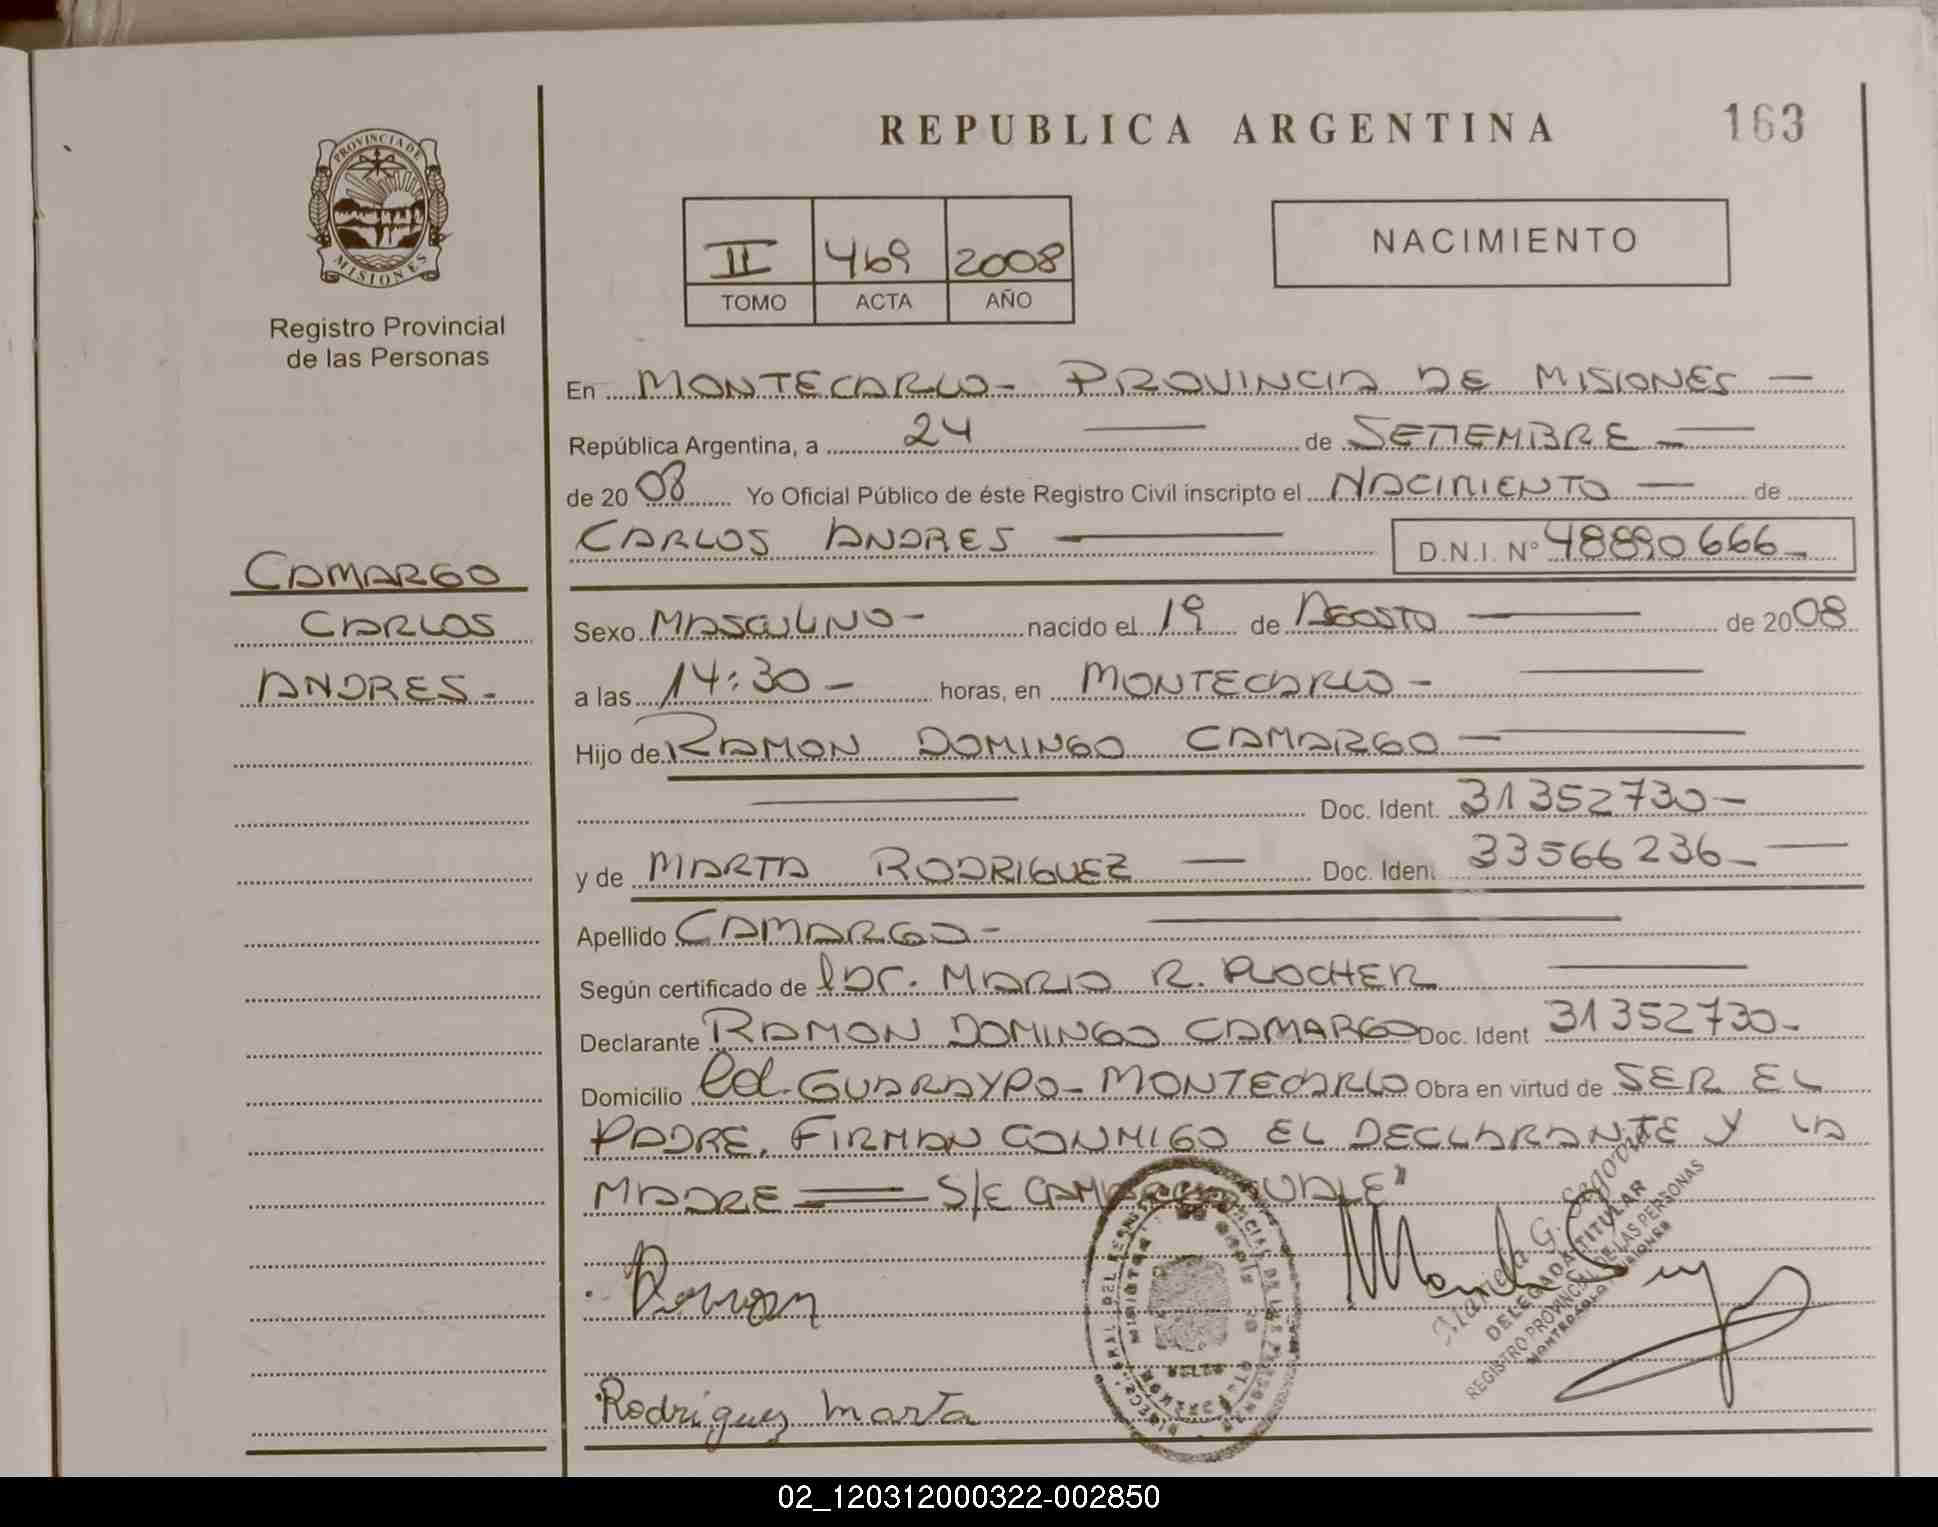 REPUBLICA ARGENTINA
163
PROVINCIA DE
MISIONES
Registro Provincial
de las Personas
II 469 2008
TOMO ACTA AÑO
NACIMIENTO
CAMARGO
CARLOS
ANDRES.-
En MONTECARLO - PROVINCIA DE MISIONES —
República Argentina, a 24 — de SETIEMBRE —
de 2008 Yo Oficial Público de éste Registro Civil inscripto el NACIMIENTO — de
CARLOS ANDRES — D.N.I. Nº 48890666-
Sexo MASCULINO - nacido el 19 de AGOSTO — de 2008
a las 14:30 - horas, en MONTECARLO - —
Hijo de RAMON DOMINGO CAMARGO —
— Doc. Ident. 31352730-
y de MARTA RODRIGUEZ — Doc. Iden. 33566236- —
Apellido CAMARGO - —
Según certificado de DR. MARIO R. PLOCHER —
Declarante RAMON DOMINGO CAMARGO Doc. Ident 31352730-
Domicilio Col. GUARAYPO - MONTECARLO Obra en virtud de SER EL
PADRE. FIRMAN CONMIGO EL DECLARANTE Y LA
MADRE — S/E CAMARGO "VALE"
Rodriguez Marta
Mariela G. Segovia
DELEGADA TITULAR
REGISTRO PROVINCIAL DE LAS PERSONAS
MONTECARLO MISIONES
02_120312000322-002850